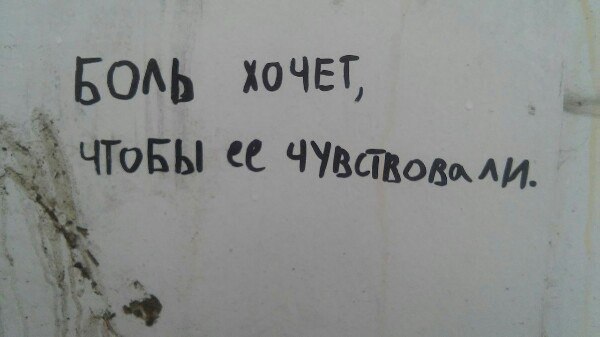 БОЛЬ ХОЧЕТ,
ЧТОБЫ ее ЧУВСТВОВаЛИ.